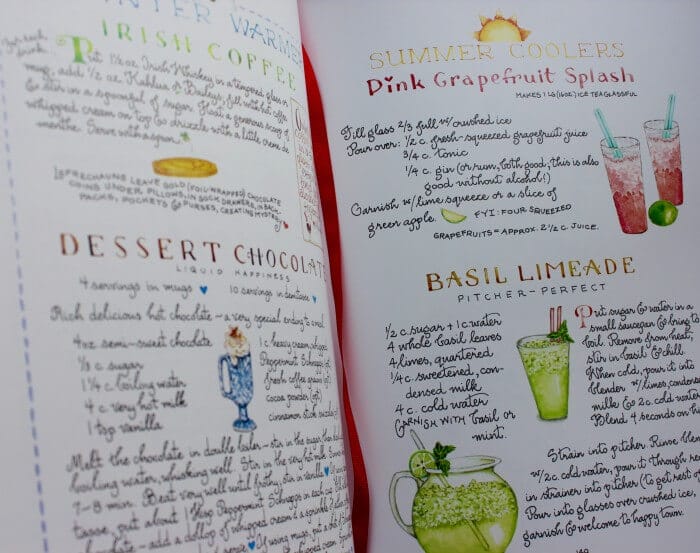 WINTER WARMERS
IRISH COFFEE
Put 1½ oz. Irish Whiskey in a tempered glass or
mug, add ½ oz. Kahlua or Baileys, fill with hot coffee
& stir in a spoonful of sugar. Float a generous scoop of
whipped cream on top & drizzle with a little creme de
menthe. Serve with a spoon.
LEPRECHAUNS LEAVE GOLD (FOIL-WRAPPED) CHOCOLATE
COINS UNDER PILLOWS, IN SOCK DRAWERS, IN BACK-
PACKS, POCKETS & PURSES, CREATING MYSTERY
DESSERT CHOCOLATE
LIQUID HAPPINESS
4 servings in mugs 10 servings in demitasse
Rich delicious hot chocolate – a very special ending to a meal
4oz semi-sweet chocolate
⅓ c. sugar
1¼ c. boiling water
4 c. very hot milk
1 tsp vanilla
1 c. heavy cream, whipped
Peppermint Schnapps (opt.)
fresh coffee grain (opt.)
cocoa powder (opt.)
cinnamon stick swizzles
Melt the chocolate in double boiler – stir in the sugar then
boiling water, whisking well. Stir in the very hot milk. Simmer
7–8 min. Beat very well until frothy, stir in vanilla
taste, put about 1 tbsp Peppermint Schnapps in each cup
chocolate – add a dollop of whipped cream & sprinkle
If using mugs, put a
SUMMER COOLERS
Pink Grapefruit Splash
MAKES 1 LG (16OZ) ICE TEA GLASSFUL
Fill glass 2/3 full w/crushed ice
Pour over: ½ c. fresh-squeezed grapefruit juice
¾ c. tonic
¼ c. gin (or rum, both good; this is also
good without alcohol!)
Garnish w/lime squeeze or a slice of
green apple.
FYI: FOUR SQUEEZED
GRAPEFRUITS = APPROX. 2½ C. JUICE.
BASIL LIMEADE
PITCHER-PERFECT
½ c. sugar + 1 c. water
4 whole basil leaves
4 limes, quartered
¼ c. sweetened, con-
densed milk
4 c. cold water
GARNISH WITH basil or
mint.
Put sugar & water in a
small saucepan & bring to
boil. Remove from heat,
stir in basil & chill.
When cold, pour it into
blender w/limes, condensed
milk & 2 c. cold water
Blend 4 seconds on
Strain into pitcher. Rinse
w/2 c. cold water, pour it through
in strainer into pitcher (to get rest of
Pour into glasses over crushed ice
garnish & welcome to happy town.